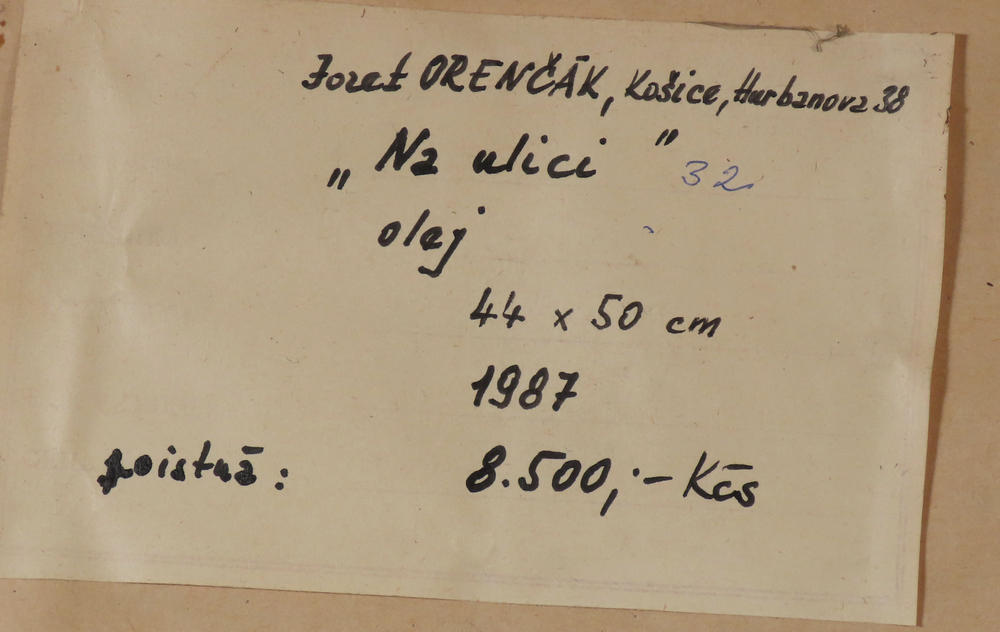 Jozef ORENČÁK, Košice, Hurbanova 38
„ Na ulici " 32
olaj
44 x 50 cm
1987
poistná: 8.500,- Kčs